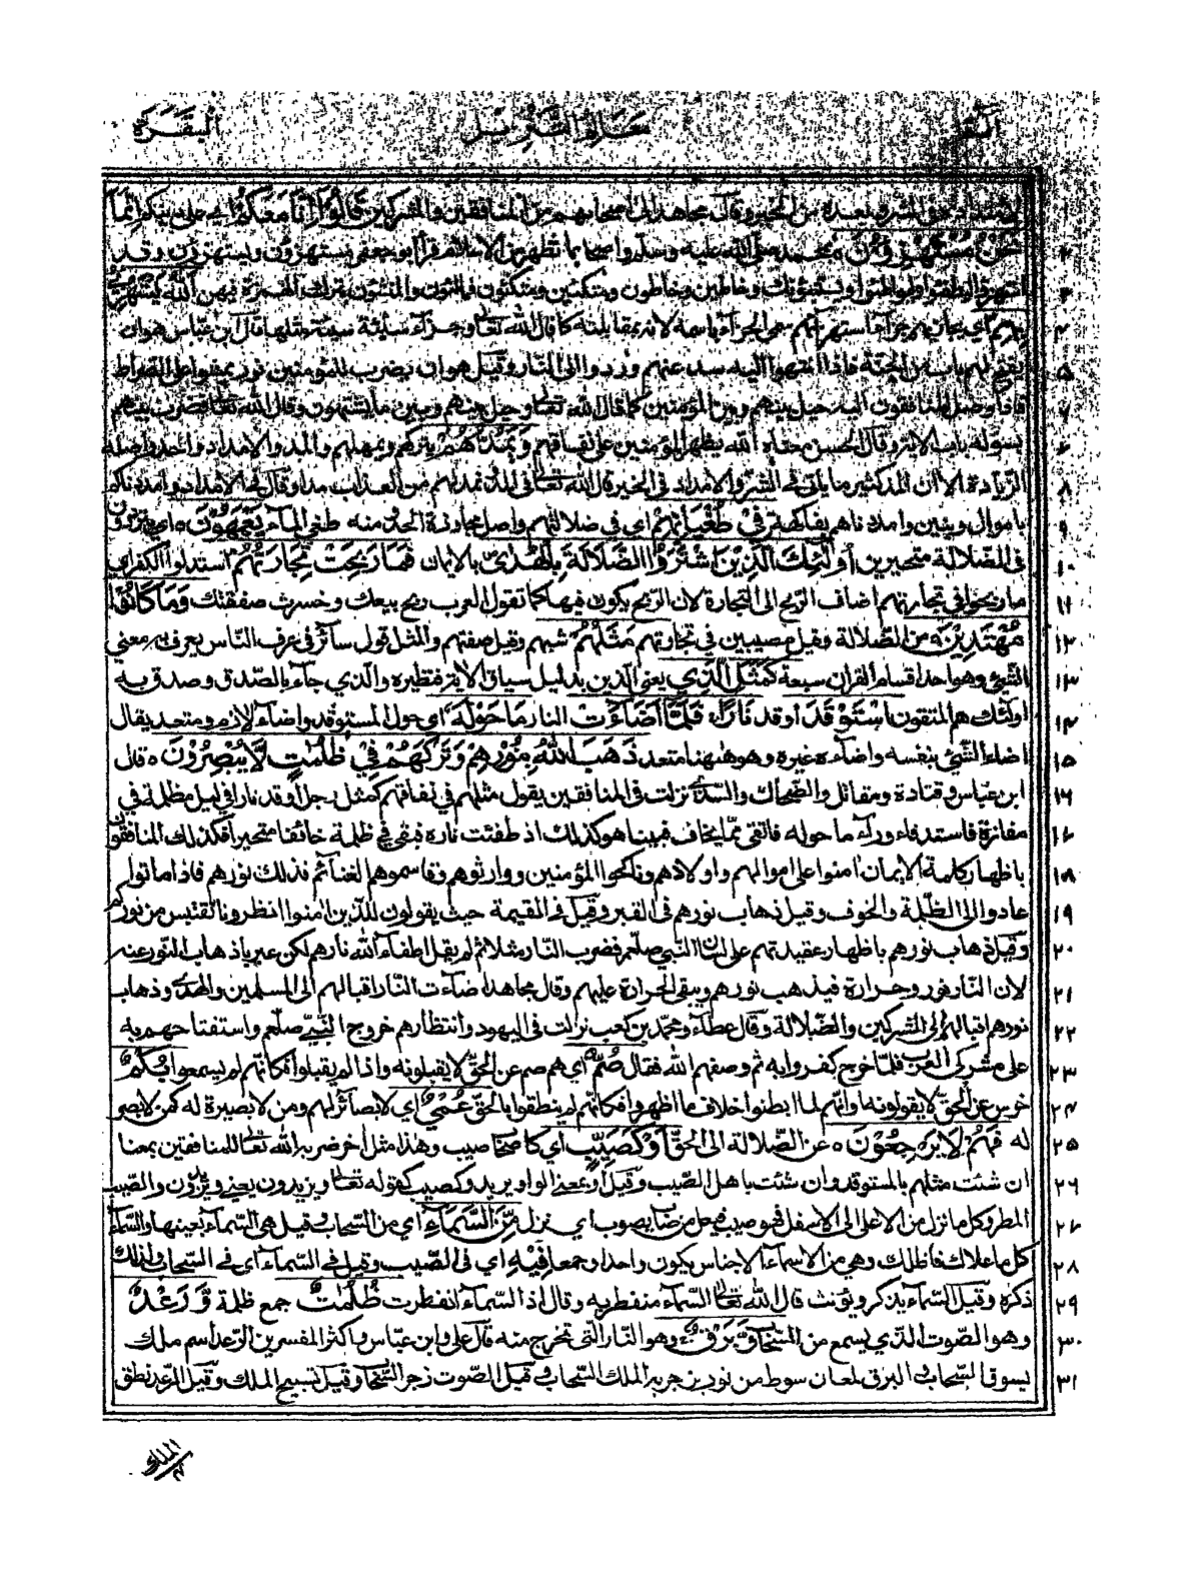 الٓمٓ معالم التنزيل البقرة
من الخير وقال مجاهد الى اصحابهم من المنافقين والمشركين قَالُوْٓا اِنَّا مَعَكُمْ اي على دينكم اِنَّمَا
نَحْنُ مُسْتَهْزِءُوْنَ بمحمد صلى الله عليه وسلم واصحابه بما نظهر من الاسلام قرأ ابو جعفر مستهزون ويستهزون وقد
وخاطئين وخاطون ومتكئين ومتكئون فمالئون والمنشئون بترك الهمزة فيهن اَللّٰهُ يَسْتَهْزِئُ
بِهِمْ اي يجازيهم جزاء استهزائهم سمى الجزاء باسمه لانه بمقابلته كما قال الله تعالى وجزاء سيئة سيئة مثلها قال ابن عباس هو ان
يفتح لهم باب من الجنة فاذا انتهوا اليه سد عنهم وردوا الى النار وقيل هو ان يضرب للمؤمنين نور يمشون على الصراط
فاذا وصل المنافقون اليه حيل بينهم وبين المؤمنين كما قال الله تعالى وحيل بينهم وبين ما يشتهون وقال الله تعالى فضرب بينهم
بسور له باب الاية وقال الحسن معناه الله يظهر المؤمنين على نفاقهم وَيَمُدُّهُمْ يتركهم ويمهلهم والمد والامداد واحد واصله
الزيادة الا ان المد كثير ما يأتي في الشر والامداد في الخير قال الله تعالى في المد ونمد لهم من العذاب مدا وقال في الامداد وامددناكم
باموال وبنين وامددناهم بفاكهة فِيْ طُغْيَانِهِمْ اي في ضلالتهم واصله مجاوزة الحد ومنه طغى الماء يَعْمَهُوْنَ ٥ اي يترددون
في الضلالة متحيرين اُولٰٓئِكَ الَّذِيْنَ اشْتَرَوُا الضَّلَالَةَ بِالْهُدٰى بالايمان فَمَا رَبِحَتْ تِّجَارَتُهُمْ استبدلوا الكفر اي
ما ربحوا في تجارتهم اضاف الربح الى التجارة لان الربح يكون فيها كما تقول العرب ربح بيعك وخسرت صفقتك وَمَا كَانُوْا
مُهْتَدِيْنَ ٥ من الضلالة وقيل مصيبين في تجارتهم مَثَلُهُمْ شبههم وقيل صفتهم والمثل قول سائر في عرف الناس يعرف به معنى
الشئ وهو احد اقسام القران سبعة كَمَثَلِ الَّذِي يعني الذين بدليل سياق الاية ونظيره والذي جاء بالصدق وصدق به
اولئك هم المتقون اسْتَوْقَدَ اوقد نَارًا ۚ فَلَمَّآ اَضَآءَتْ النار مَا حَوْلَهٗ اي حول المستوقد واضاء لازم ومتعد يقال
اضاء الشئ بنفسه واضاءه غيره وهو ههنا متعد ذَهَبَ اللّٰهُ بِنُوْرِهِمْ وَتَرَكَهُمْ فِيْ ظُلُمٰتٍ لَّا يُبْصِرُوْنَ ٥ قال
ابن عباس وقتادة ومقاتل والضحاك والسدي نزلت في المنافقين يقول مثلهم في نفاقهم كمثل رجل اوقد نارا في ليل مظلمة في
مفازة فاستدفاء وراى ما حوله فاتقى مما يخاف فبينا هو كذلك اذ طفئت ناره فبقى في ظلمة خائفا متحيرا فكذلك المنافقون
باظهار كلمة الايمان امنوا على اموالهم واولادهم وناكحوا المؤمنين ووارثوهم وقاسموهم الغنائم فذلك نورهم فاذا ماتوا
عادوا الى الظلمة والخوف وقيل ذهاب نورهم في القبر وقيل في القيمة حيث يقولون للذين امنوا انظرونا نقتبس من نوركم
وقيل ذهاب نورهم باظهار عقيدتهم على لسان النبي صلعم فضرب النار مثلا ثم لم يقل اطفاء الله نارهم لكن عبر باذهاب النور عنه
لان النار نور وحرارة فيذهب نورهم ويبقى الحرارة عليهم وقال مجاهد اضاءت النار اقبالهم الى المسلمين والهدى وذهاب
نورهم اقبالهم الى المشركين والضلالة وقال عطاء ومحمد بن كعب نزلت في اليهود وانتظارهم خروج النبي صلعم واستفتاحهم به
على مشركي العرب فلما خرج كفروا به ثم وصفهم الله فقال صُمٌّ اي هم صم عن الحق لا يقبلونه واذا لم يقبلوا فكانهم لم يسمعوا بُكْمٌ
خرس عن الحق لا يقولونه وانهم لما ابطنوا خلاف ما اظهروا فكانهم لم ينطقوا بالحق عُمْيٌ اي لا بصائر لهم ومن لا بصيرة له كمن لا بصر
له فَهُمْ لَا يَرْجِعُوْنَ ٥ عن الضلالة الى الحق اَوْ كَصَيِّبٍ اي كاصحاب صيب وهذا مثل اخر ضربه الله تعالى للمنافقين بمعنى
ان شئت مثلهم بالمستوقد وان شئت باهل الصيب وقيل او بمعنى الواو يريد وكصيب كقوله تعالى او يزيدون يعني ويزيدون والصيب
المطر وكل ما نزل من الاعلى الى الاسفل فهو صيب فيعل من صاب يصوب اي نزل مِّنَ السَّمَآءِ اي من السحاب وقيل هي السماء بعينها والسماء
كل ما علاك فاظلك وهي من الاسماء الاجناس يكون واحدا وجمعا فِيْهِ اي في الصيب وقيل في السماء اي في السحاب ولذلك
ذكره وقيل السماء يذكر ويؤنث قال الله تعالى السماء منفطر به وقال اذا السماء انفطرت ظُلُمٰتٌ جمع ظلمة وَّرَعْدٌ
وهو الصوت الذي يسمع من السحاب وَّبَرْقٌ ۚ وهو النار التي تخرج منه قال علي وابن عباس واكثر المفسرين الرعد اسم ملك
يسوق السحاب والبرق لمعان سوط من نور يزجر به الملك السحاب وقيل الصوت زجر السحاب وقيل تسبيح الملك وقيل الرعد نطق
الملك